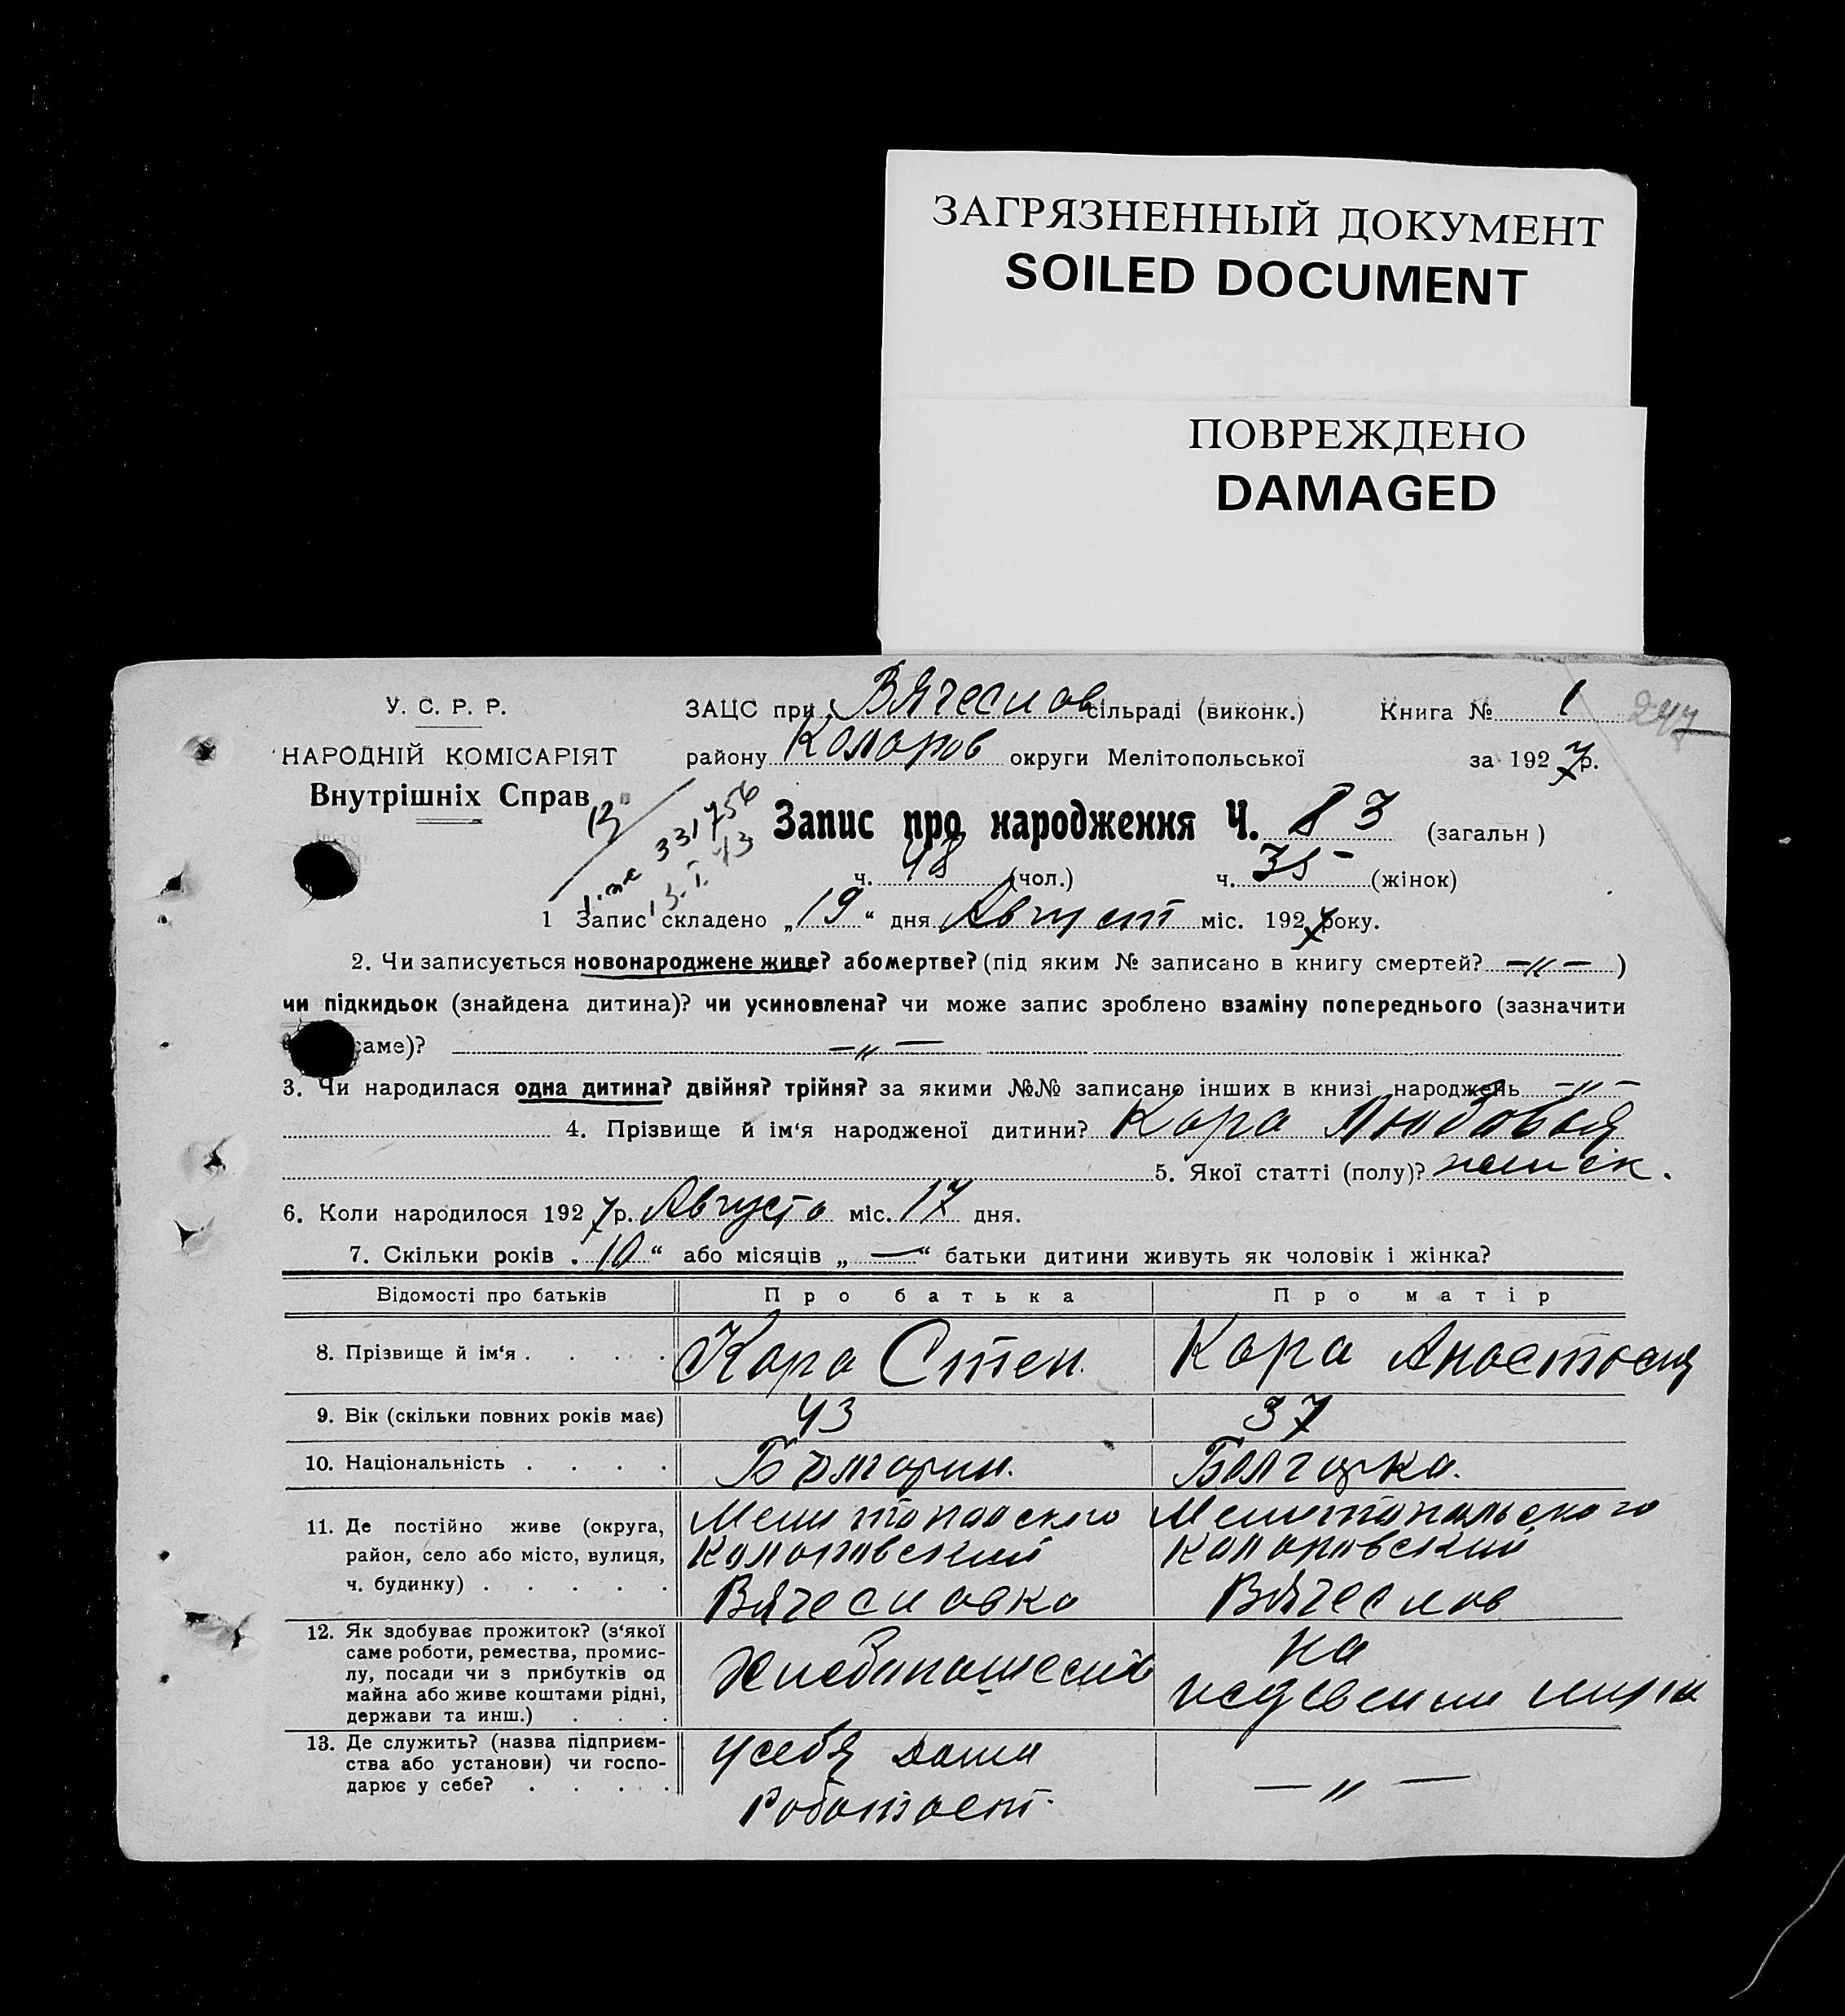 ЗАГРЯЗНЕННЫЙ ДОКУМЕНТ
SOILED DOCUMENT
ПОВРЕЖДЕНО
DAMAGED
У. С. Р. Р.
НАРОДНІЙ КОМІСАРІЯТ
Внутрішніх Справ
ЗАЦС при Вячеслов сільраді (виконк.) Книга № 1 247
району Коларов округи Мелітопольської за 1927 р.
331756
Запис про народження Ч. 83 (загальн)
ч. 48 (чол.) ч. 35 (жінок)
1 Запис складено „19“ дня Август міс. 1927 року.
2. Чи записується новонароджене живе? або мертве? (під яким № записано в книгу смертей? —〃— )
чи підкидьок (знайдена дитина)? чи усиновлена? чи може запис зроблено взаміну попереднього (зазначити
саме)? —〃—
3. Чи народилася одна дитина? двійня? трійня? за якими №№ записано інших в книзі народжень —〃—
4. Прізвище й ім‘я народженої дитини? Кара Любовья
5. Якої статті (полу)?
6. Коли народилося 1927 р. Августа міс. 17 дня.
7. Скільки років „10“ або місяців „—“ батьки дитини живуть як чоловік і жінка?
Відомості про батьків Про батька Про матір
8. Прізвище й ім‘я . . . . Кара Степ. Кара Анастасия
9. Вік (скільки повних років має) 43 37
10. Національність . . . . Болгарин. Болгарка.
11. Де постійно живе (округа, район, село або місто, вулиця, ч. будинку) . . . . .
Мелитопольского Мелитопольского
Коларовский Коларовский
Вячесловка Вячеслов
12. Як здобуває прожиток? (з‘якої саме роботи, ремества, промислу, посади чи з прибутків од майна або живе коштами рідні, держави та инш.) . . .
Хлебопашеств на
иждвении
13. Де служить? (назва підприємства або установи) чи господарює у себе? . . . .
у себя дома —〃—
Работает.